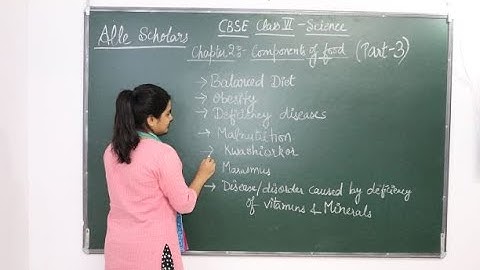 Alle Scholars
CBSE Class VI - Science
Chapter 2:- Components of food (Part-3)
→ Balanced Diet
→ Obesity
→ Deficiency diseases
→ Malnutrition
→ Kwashiorkor
Marasmus
→ Disease/disorder caused by deficiency
of vitamins & Minerals